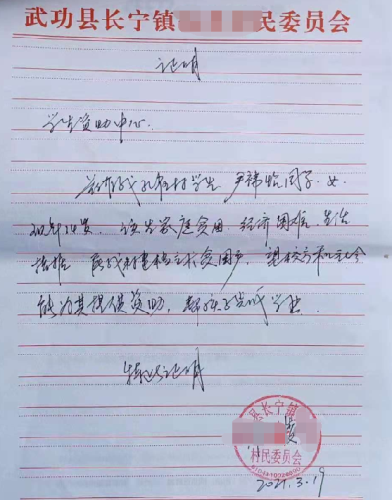 武功县长宁镇 民委员会
证明
学生资助中心:
兹有我 村学生 同学,女,
年14岁,该生家庭贫困,经济困难,生活
拮据, 我村建档立卡贫困户,望校方和社会
能为其提供资助, 孩子完成学业。
特此证明
县长宁镇
村民委员会
2021.3.19